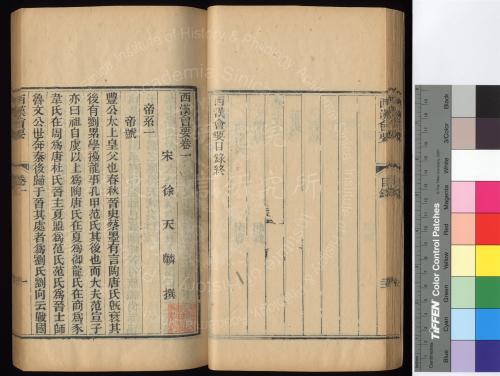 西漢會要目錄終
西漢會要
目錄
西漢會要卷一
宋 徐 天 麟 撰
帝系一
帝號
豐公太上皇父也春秋晉史蔡墨有言陶唐氏既衰其
後有劉累學擾龍事孔甲范氏其後也而大夫范宣子
亦曰祖自虞以上爲陶唐氏在夏爲御龍氏在商爲豕
韋氏在周爲唐杜氏晉主夏盟爲范氏范氏爲晉士師
魯文公世奔秦後歸于晉其處者爲劉氏劉向云戰國
西漢會要
卷一
一
Institute of History & Philology
Academia Sinica
TIFFEN Color Control Patches
Blue
Cyan
Green
Yellow
Red
Magenta
White
3/Color
Black
Centimetres